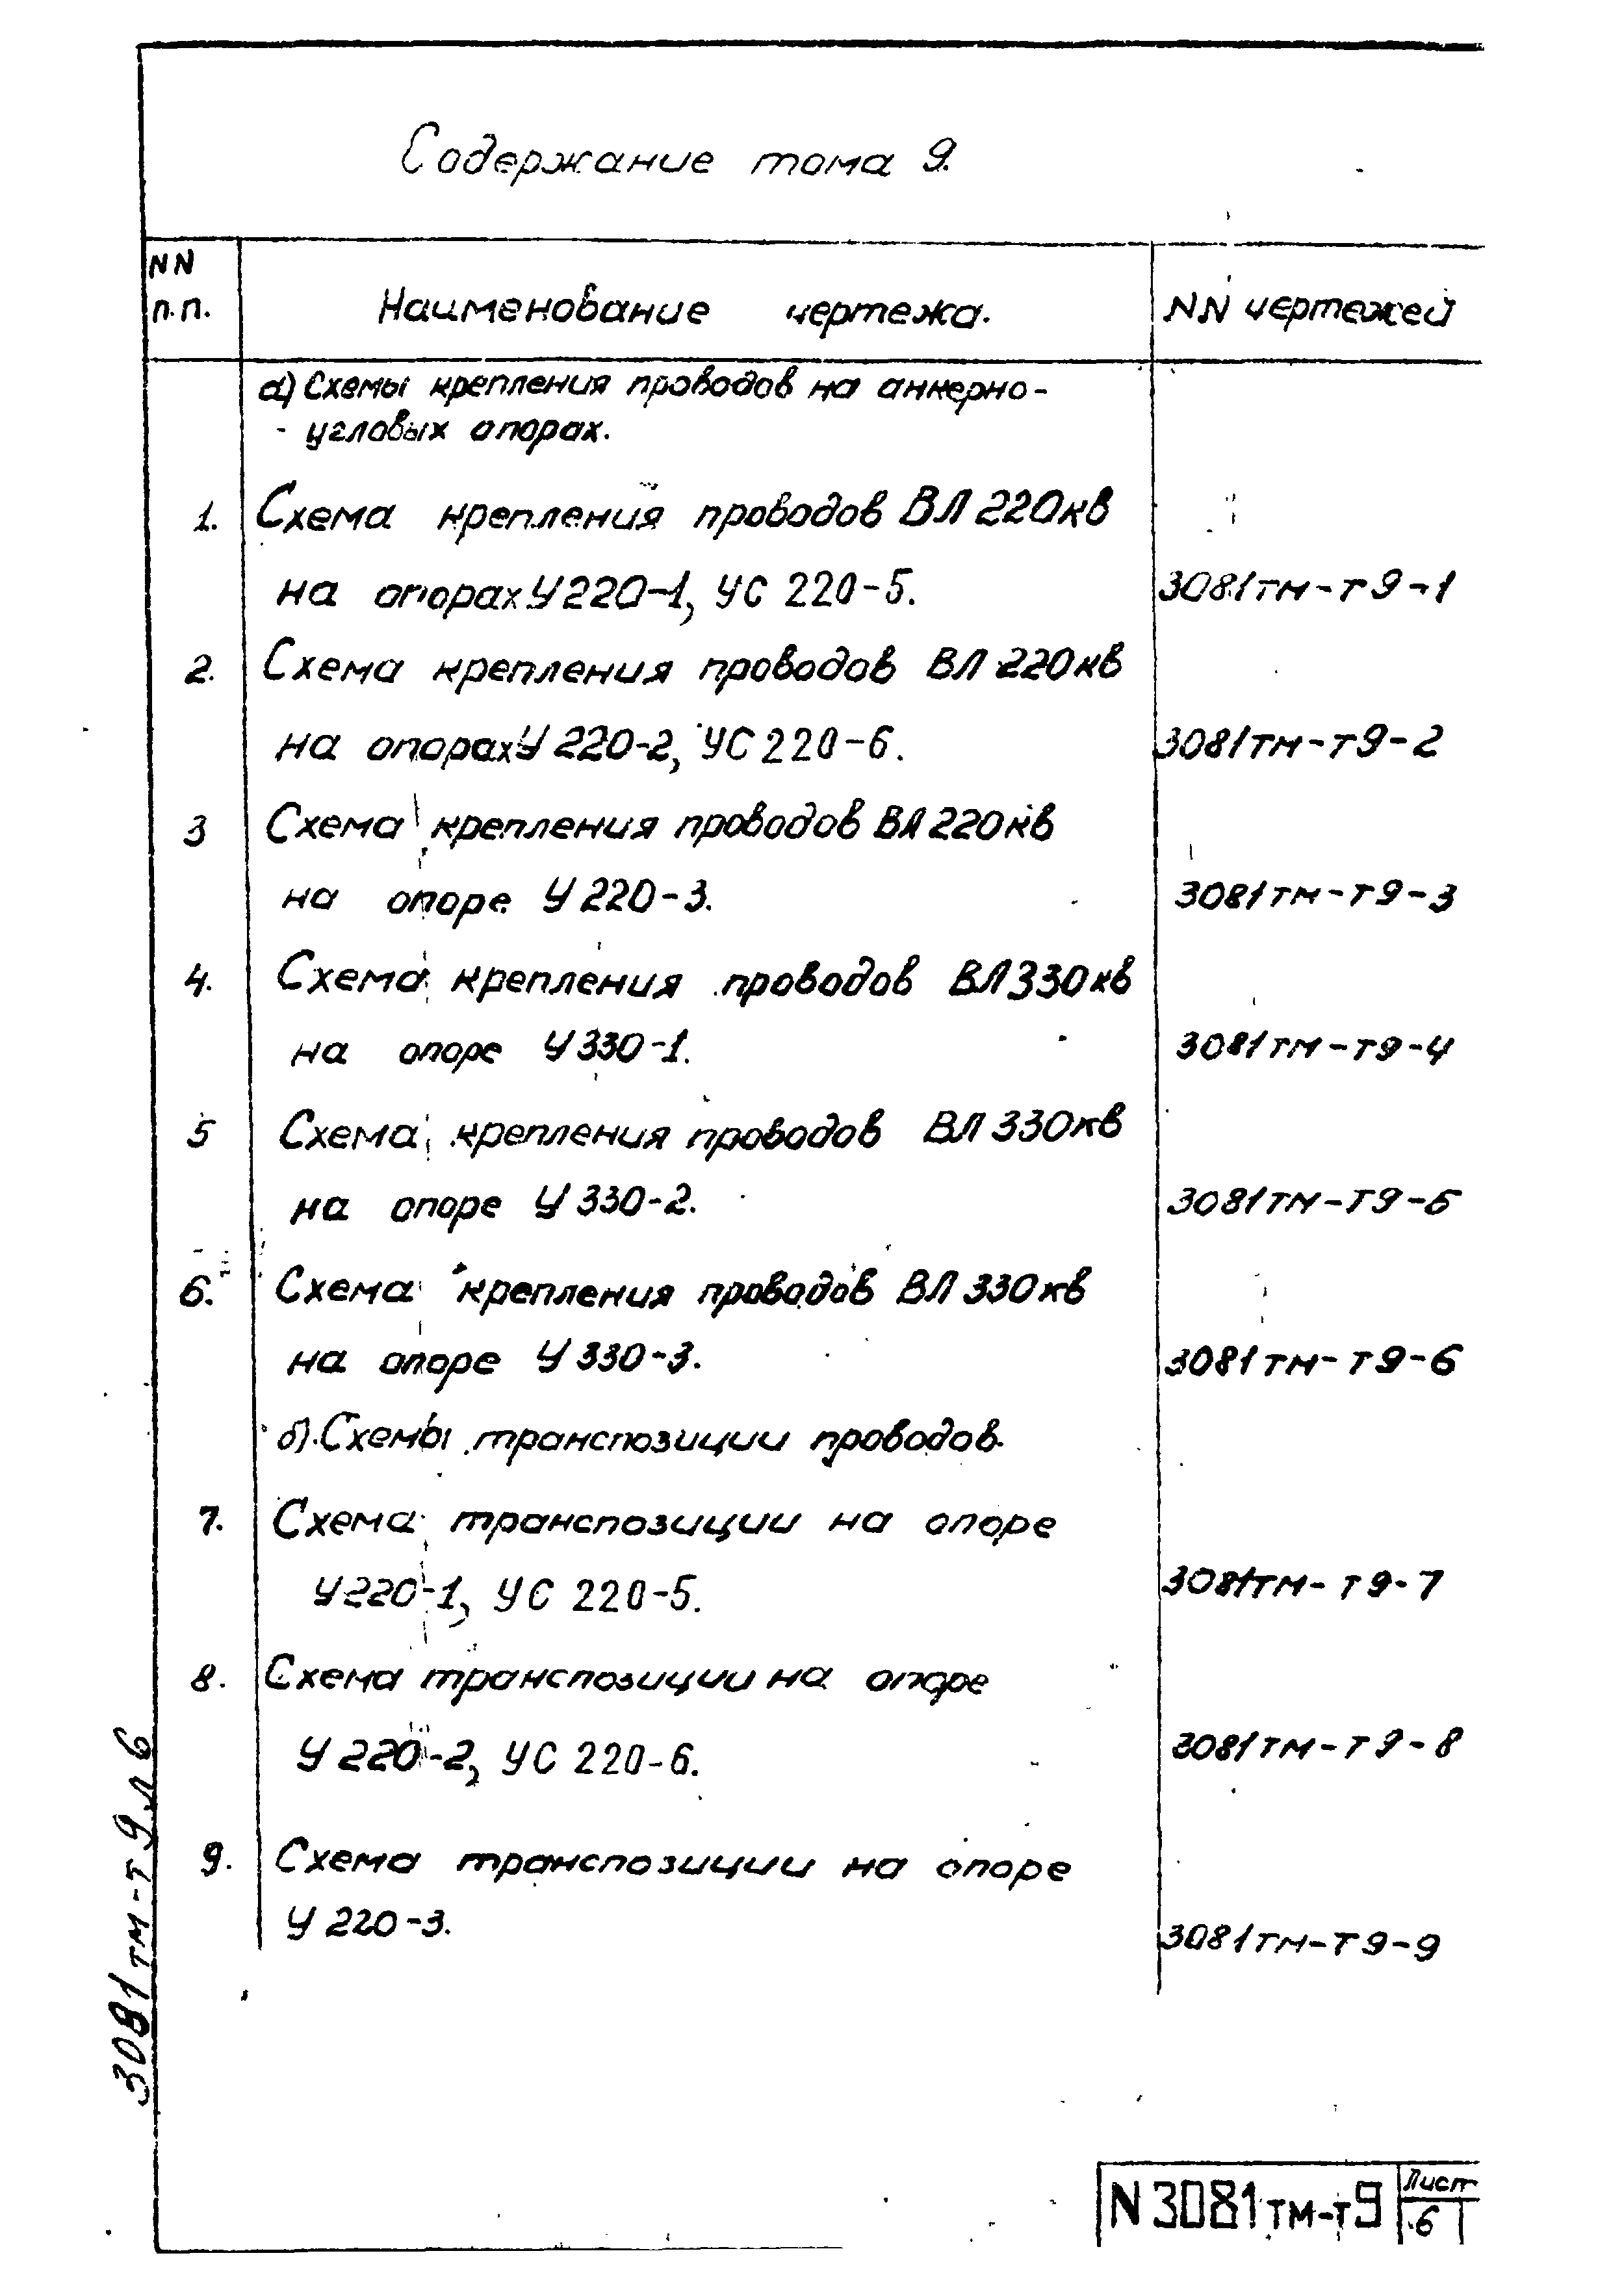 Содержание тома 9.
NN
п.п.
Наименование чертежа.
NN чертежей
а) Схемы крепления проводов на анкерно-
- угловых опорах.
1. Схема крепления проводов ВЛ 220кв
на опорах У220-1, УС 220-5. 3081тм-т9-1
2. Схема крепления проводов ВЛ 220кв
на опорах У 220-2, УС 220-6. 3081тм-т9-2
3 Схема крепления проводов ВЛ 220кв
на опоре У 220-3. 3081тм-т9-3
4. Схема крепления проводов ВЛ 330кв
на опоре У 330-1. 3081тм-т9-4
5 Схема крепления проводов ВЛ 330кв
на опоре У 330-2. 3081тм-т9-5
6. Схема крепления проводов ВЛ 330кв
на опоре У 330-3. 3081тм-т9-6
б). Схемы транспозиции проводов.
7. Схема транспозиции на опоре
У220-1, УС 220-5. 3081тм-т9-7
8. Схема транспозиции на опоре
У 220-2, УС 220-6. 3081тм-т9-8
9. Схема транспозиции на опоре
У 220-3. 3081тм-т9-9
3081тм-т9 л 6
N 3081тм-т9
Лист
6